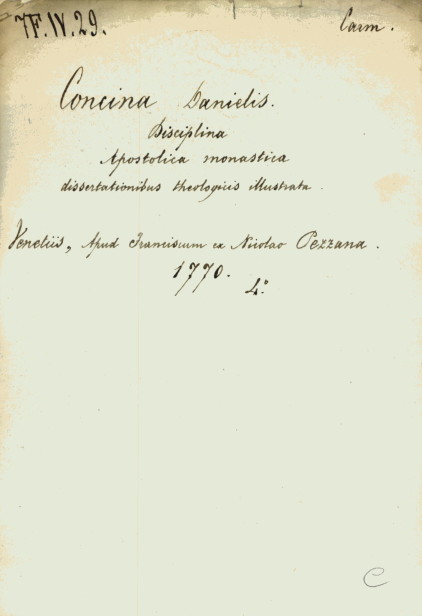 7F.IV.29.
Carm.
Concina Danielis.
Disciplina
Apostolica monastica
dissertationibus theologicis illustrata.
Venetiis, Apud Franciscum ex Nicolao Pezzana.
1770.
4.°
C